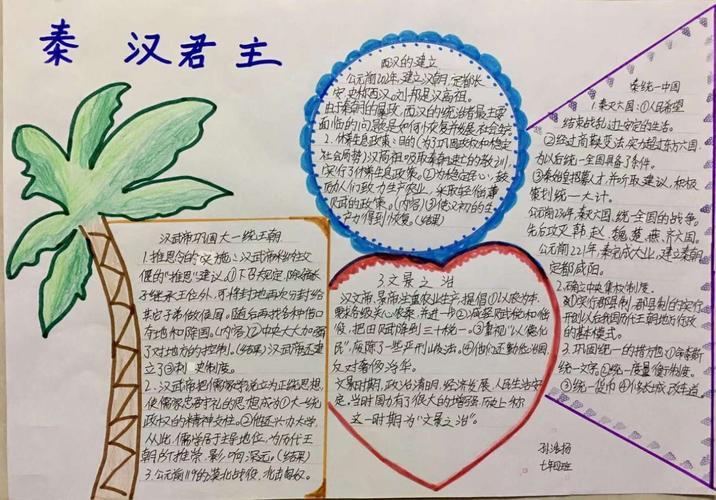 秦 汉君主
西汉的建立
公元前202年,建立汉朝,定都长
安,史称西汉。刘邦是汉高祖。
由于秦朝的暴政,西汉的统治者最主要
面临的问题是如何恢复并发展社会生产
2.休养生息政策:目的(为了巩固政权和稳定
社会局势)汉高祖吸取秦朝速亡的教训
实行了休养生息政策。②为稳定民心,鼓
励人们致力生产农业,采取轻徭薄
赋的政策。(内容)③使汉初的生
产力得到恢复。(结果)
秦统一中国
1.秦灭六国:①人民希望
结束战乱,过安定的生活。
②经过商鞅变法,实力超过东方六国,
为以后统一全国具备了条件。
③秦始皇招募人才,并听取建议,积极
策划统一大计。
公元前230年,秦灭六国,统一全国的战争。
先后攻灭韩 赵 魏 楚 燕 齐六国。
公元前221年,秦完成大业,建立秦朝
定都咸阳。
2.确立中央集权制度。
实行郡县制,郡县制的实行
开创以后我国历代王朝地方行政
的基本模式。
3.巩固统一的措施:①
统一文字②统一度量衡制度。
③统一货币④修长城,改车道
汉武帝巩固大一统王朝
1.推恩令的实施:汉武帝采纳主父
偃的"推恩"建议,①下令规定,除
子继承王位外,可将封地再次分封给
其它子弟做侯国。随后再找各种借口
夺地和除国。(内容)②中央大大加强
了对地方的控制。(结果)汉武帝还建
立了③刺史制度。
2.汉武帝把儒家学说立为正统思想,
使儒家忠君守礼的思想成为①大一统
政权的精神支柱。②他还兴办太学,
从此,儒学居于主导地位,为历代王
朝所推崇,影响深远。(结果)
3.公元前119的漠北战役,北击匈奴。
3 文景之治
汉文帝、景帝注重农业生产,提倡①以农为本,
进一步②减轻赋税和徭
役,把田赋降到三十税一。③重视"以德化
民",废除了一些严刑峻法。④他们还勤俭治国,
反对奢侈浮华。
文景时期,政治清明,经济发展,人民生活安
定,当时国力有了很大的增强,历史上称
这一时期为"文景之治"。
孙浩扬
七年四班